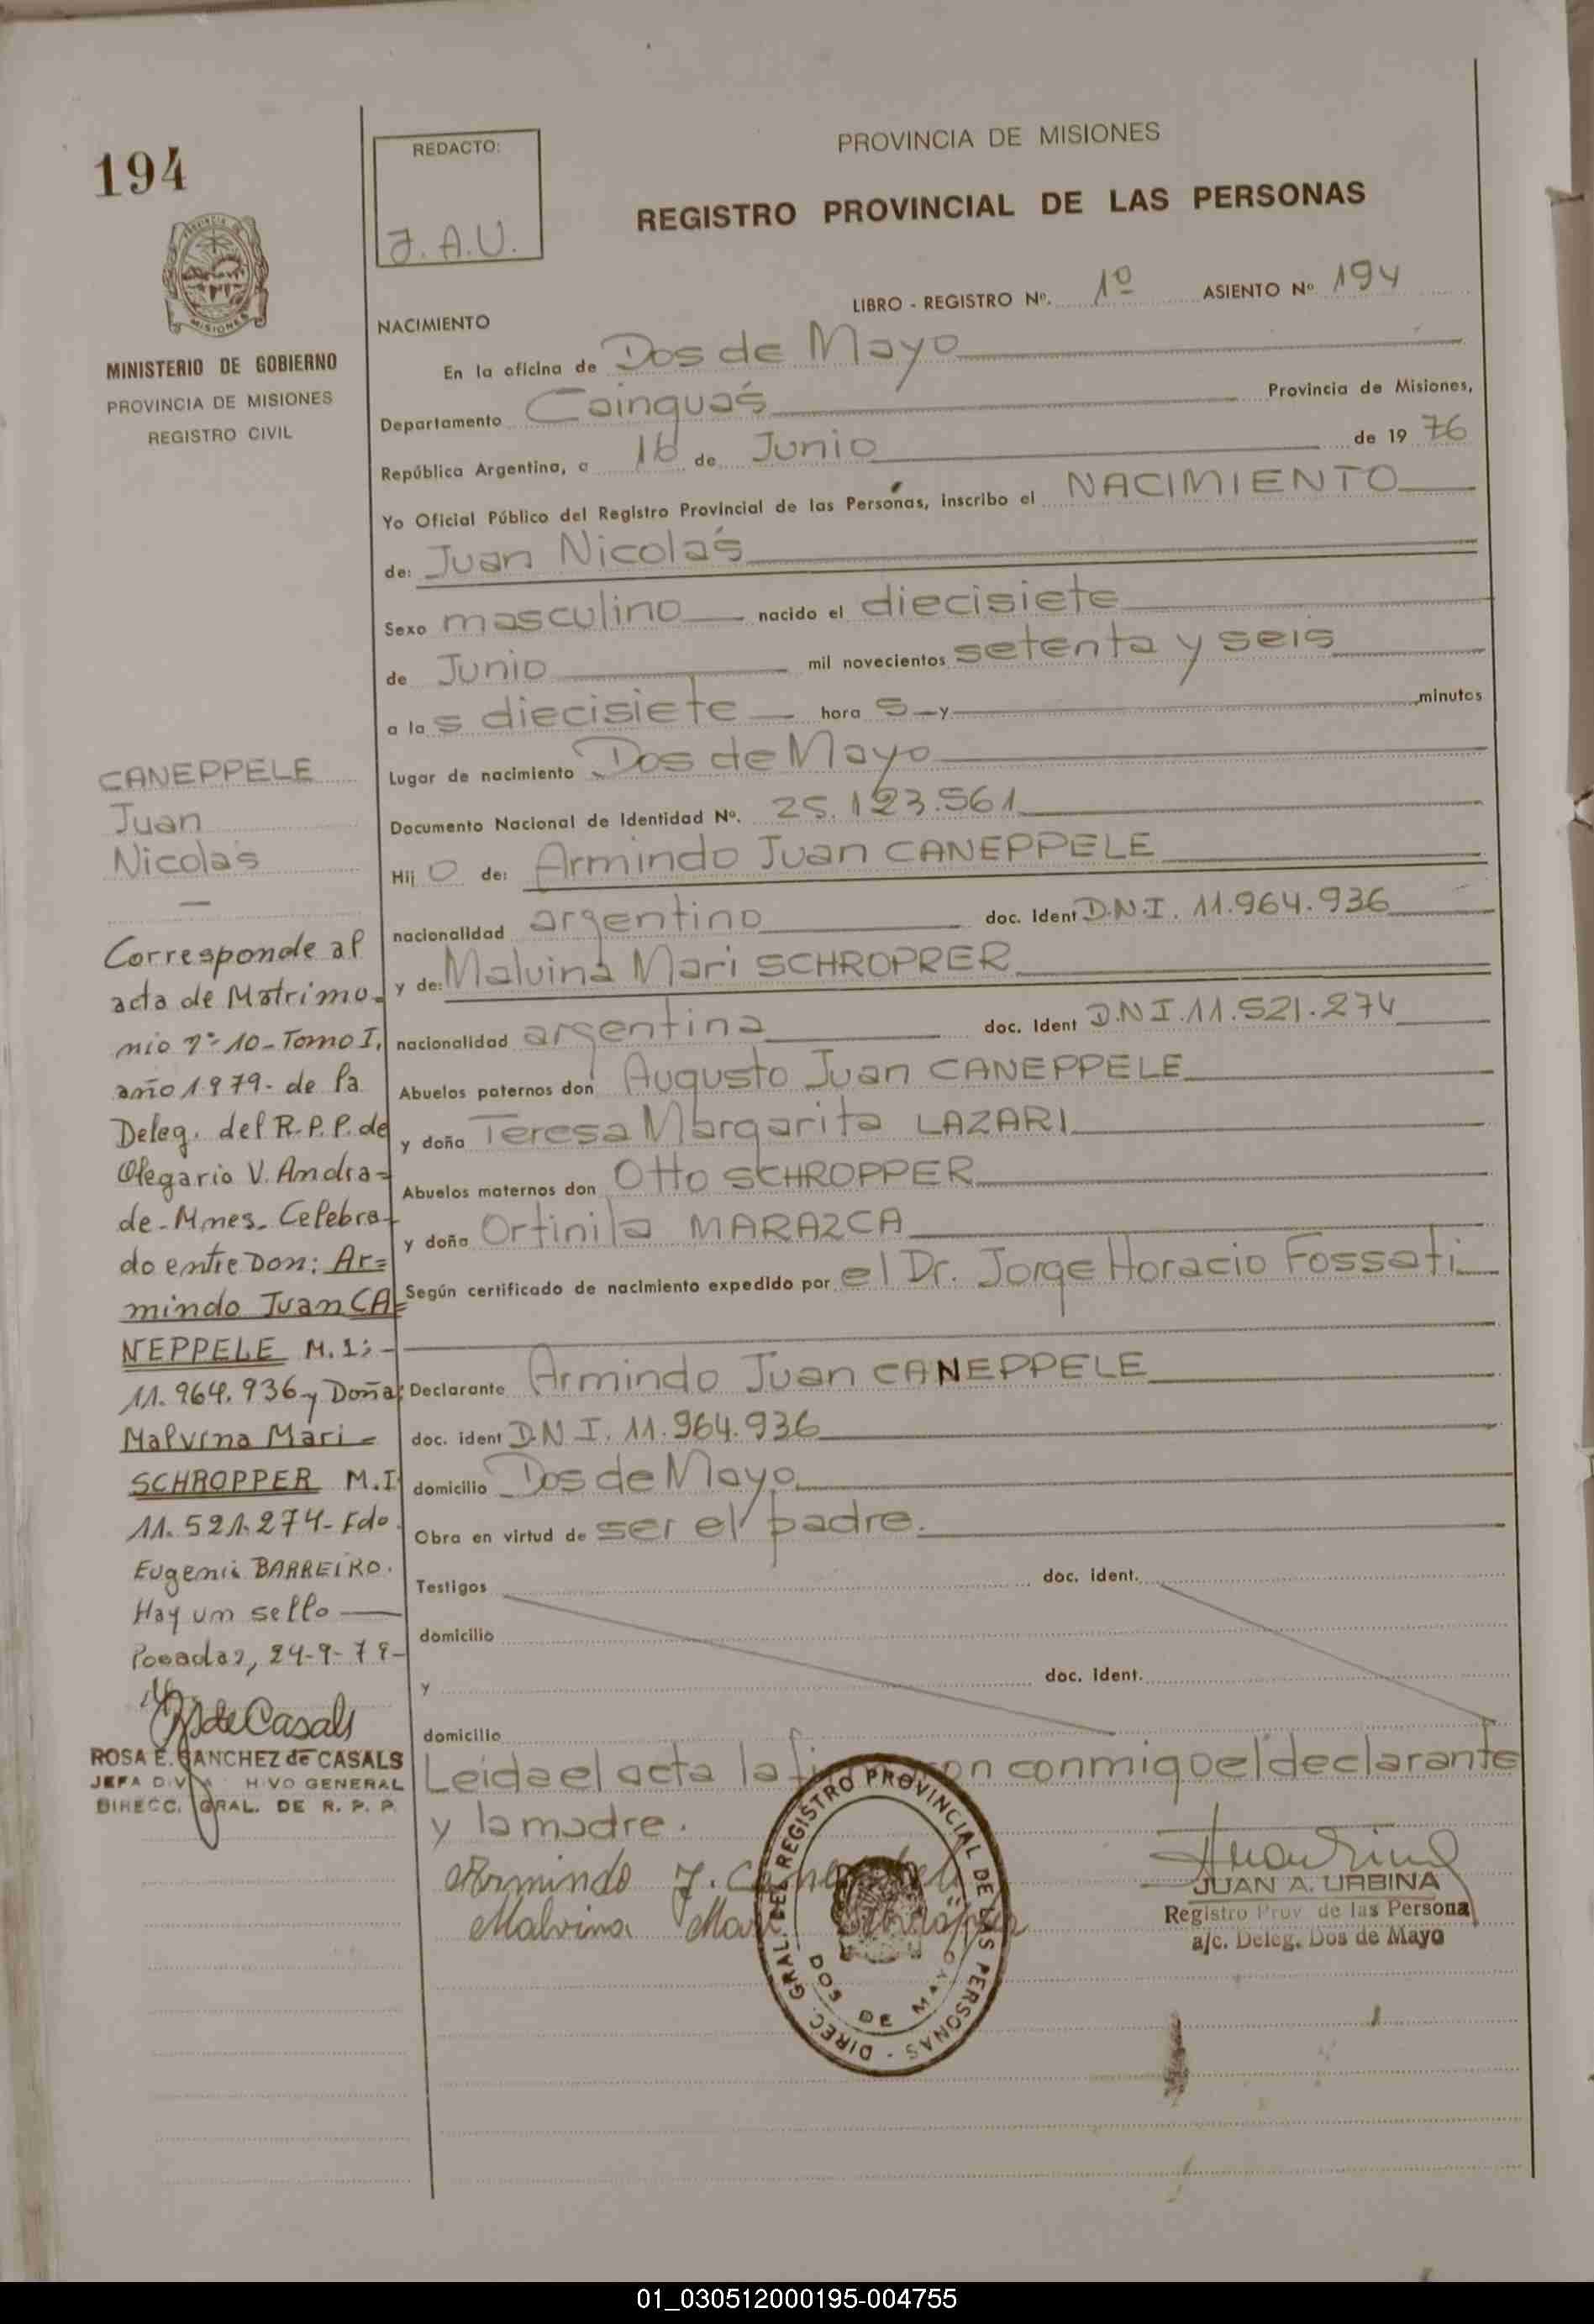 194
MINISTERIO DE GOBIERNO
PROVINCIA DE MISIONES
REGISTRO CIVIL
REDACTO:
J.A.U.
PROVINCIA DE MISIONES
REGISTRO PROVINCIAL DE LAS PERSONAS
LIBRO - REGISTRO Nº. 1º ASIENTO Nº 194
NACIMIENTO
En la oficina de Dos de Mayo
Departamento Cainguás Provincia de Misiones,
República Argentina, a de Junio de 19 76
Yo Oficial Público del Registro Provincial de las Personas, inscribo el NACIMIENTO
de: Juan Nicolás
Sexo masculino nacido el diecisiete
de Junio mil novecientos setenta y seis
a la s diecisiete hora s y minutos
Lugar de nacimiento Dos de Mayo
Documento Nacional de Identidad Nº. 25.123.561
Hij o de: Armindo Juan CANEPPELE
nacionalidad argentino doc. Ident D.N.I. 11.964.936
y de: Malvina Mari SCHROPRER
nacionalidad argentina doc. Ident D.N.I. 11.521.274
Abuelos paternos don Augusto Juan CANEPPELE
y doña Teresa Margarita LAZARI
Abuelos maternos don Otto SCHROPPER
y doña Ortinila MARAZCA
Según certificado de nacimiento expedido por el Dr. Jorge Horacio Fossati
Declarante Armindo Juan CANEPPELE
doc. ident D.N.I. 11.964.936
domicilio Dos de Mayo
Obra en virtud de ser el padre.
Testigos doc. ident.
domicilio
y doc. ident.
domicilio
Leída el acta la conmigo el declarante
y la madre.
Armindo J.
Malvina
DIREC. GRAL. DEL REGISTRO PROVINCIAL DE LAS PERSONAS -
DOS DE MAYO
JUAN A. URBINA
Registro Prov. de las Persona
a/c. Deleg. Dos de Mayo
CANEPPELE
Juan
Nicolás
Corresponde al
acta de Matrimo-
nio nº 10- Tomo I,
año 1979- de la
Deleg. del R.P.P. de
Olegario V. Andra=
de- Mnes- Celebra-
do entre Don: Ar=
mindo Juan CA=
NEPPELE M.I:-
11.964.936 y Doña:
Malvina Mari=
SCHROPPER M.I
11.521.274- Fdo.
Eugenia BARREIRO.
Hay un sello
Posadas, 24-9-79-
de Casals
ROSA E. SANCHEZ de CASALS
JEFA DIV HIVO GENERAL
DIRECC. GRAL. DE R. P. P.
01_030512000195-004755